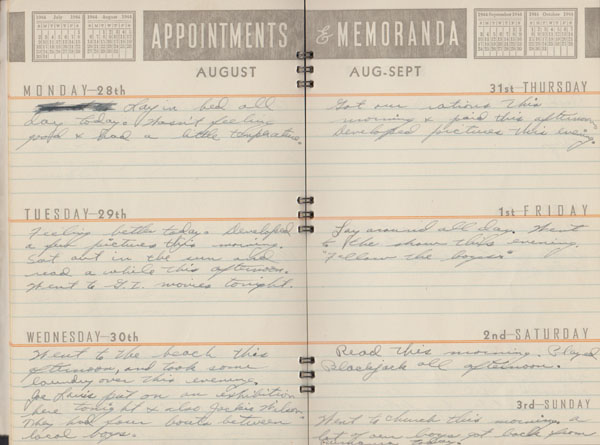 1944 July 1944
1944 August 1944
APPOINTMENTS & MEMORANDA
1944 September 1944
1944 October 1944
AUGUST
AUG-SEPT
MONDAY 28th
Lay in bed all
day today. Wasn't feeling
good & had a little temperature.
TUESDAY 29th
Feeling better today. Developed
a few pictures this morning.
Sat out in the sun and
read a while this afternoon.
Went to G.I. movies tonight.
WEDNESDAY 30th
Went to the beach this
afternoon, and took some
laundry over this evening.
Joe Louis put on an exhibition
here tonight & also Jackie Wilson
They had four bouts between
local boys.
31st THURSDAY
Got our rations this
morning & paid this afternoon
Developed pictures this evening.
1st FRIDAY
Lay around all day. Went
to the show this evening.
"Follow the boys"
2nd SATURDAY
Read this morning. Played
Blackjack all afternoon.
3rd SUNDAY
Went to church this morning, a
lot of our boys got back from
today.